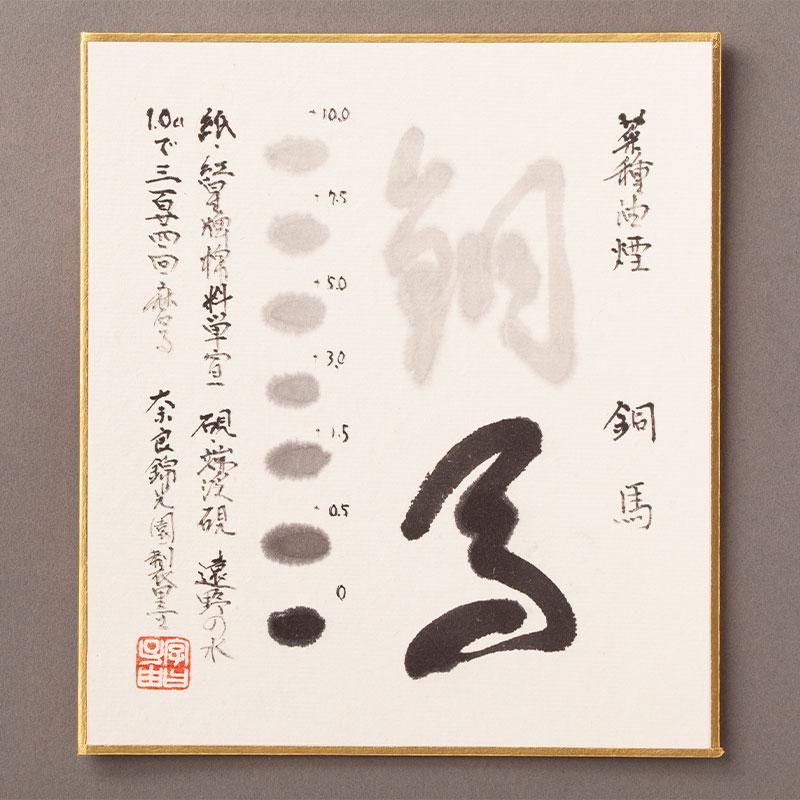 菜種油煙 銅馬
銅馬
10.0
7.5
5.0
3.0
1.5
0.5
0
紙・紅星牌棉料単宣 硯・端渓硯 遠野の水
1.0ccで三百廿四回磨る 奈良錦光園製墨